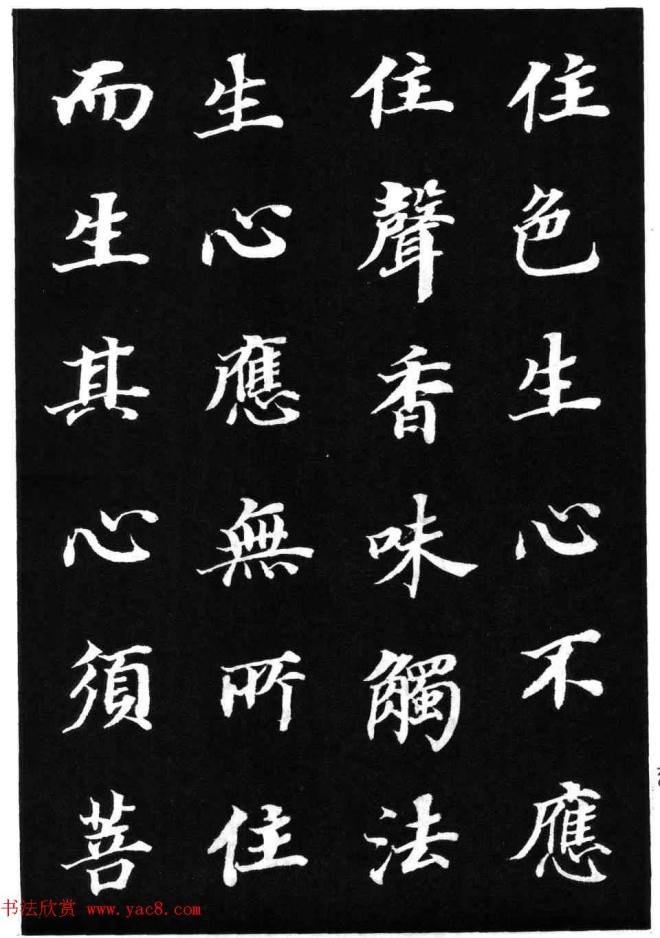 住色生心不應
住聲香味觸法
生心應無所住
而生其心須菩
书法欣赏 www.yac8.com